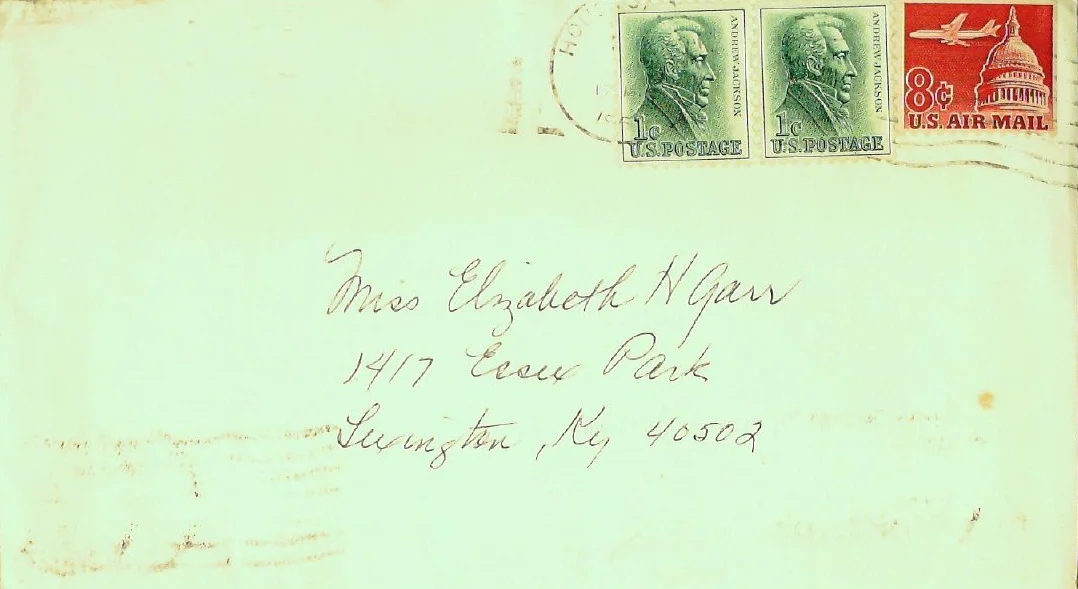 ANDREW JACKSON
1¢
U.S. POSTAGE
ANDREW JACKSON
1¢
U.S. POSTAGE
8¢
U.S. AIR MAIL
Miss Elizabeth H Garr
1417 Essex Park
Lexington, Ky 40502